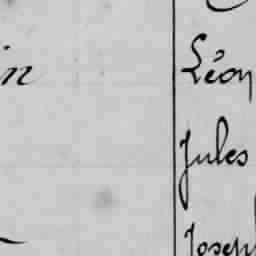 in Léon
Jules
Joseph